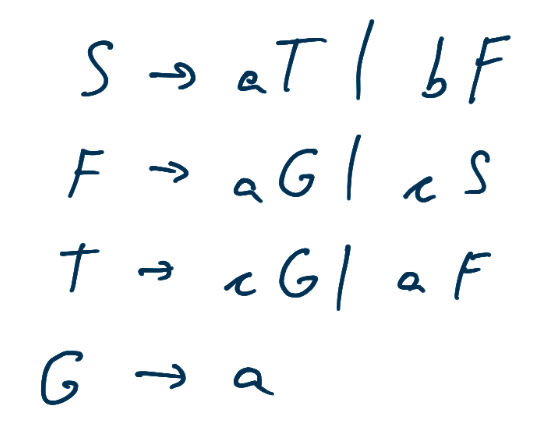 S → aT | bF
F → aG | cS
T → cG | aF
G → a